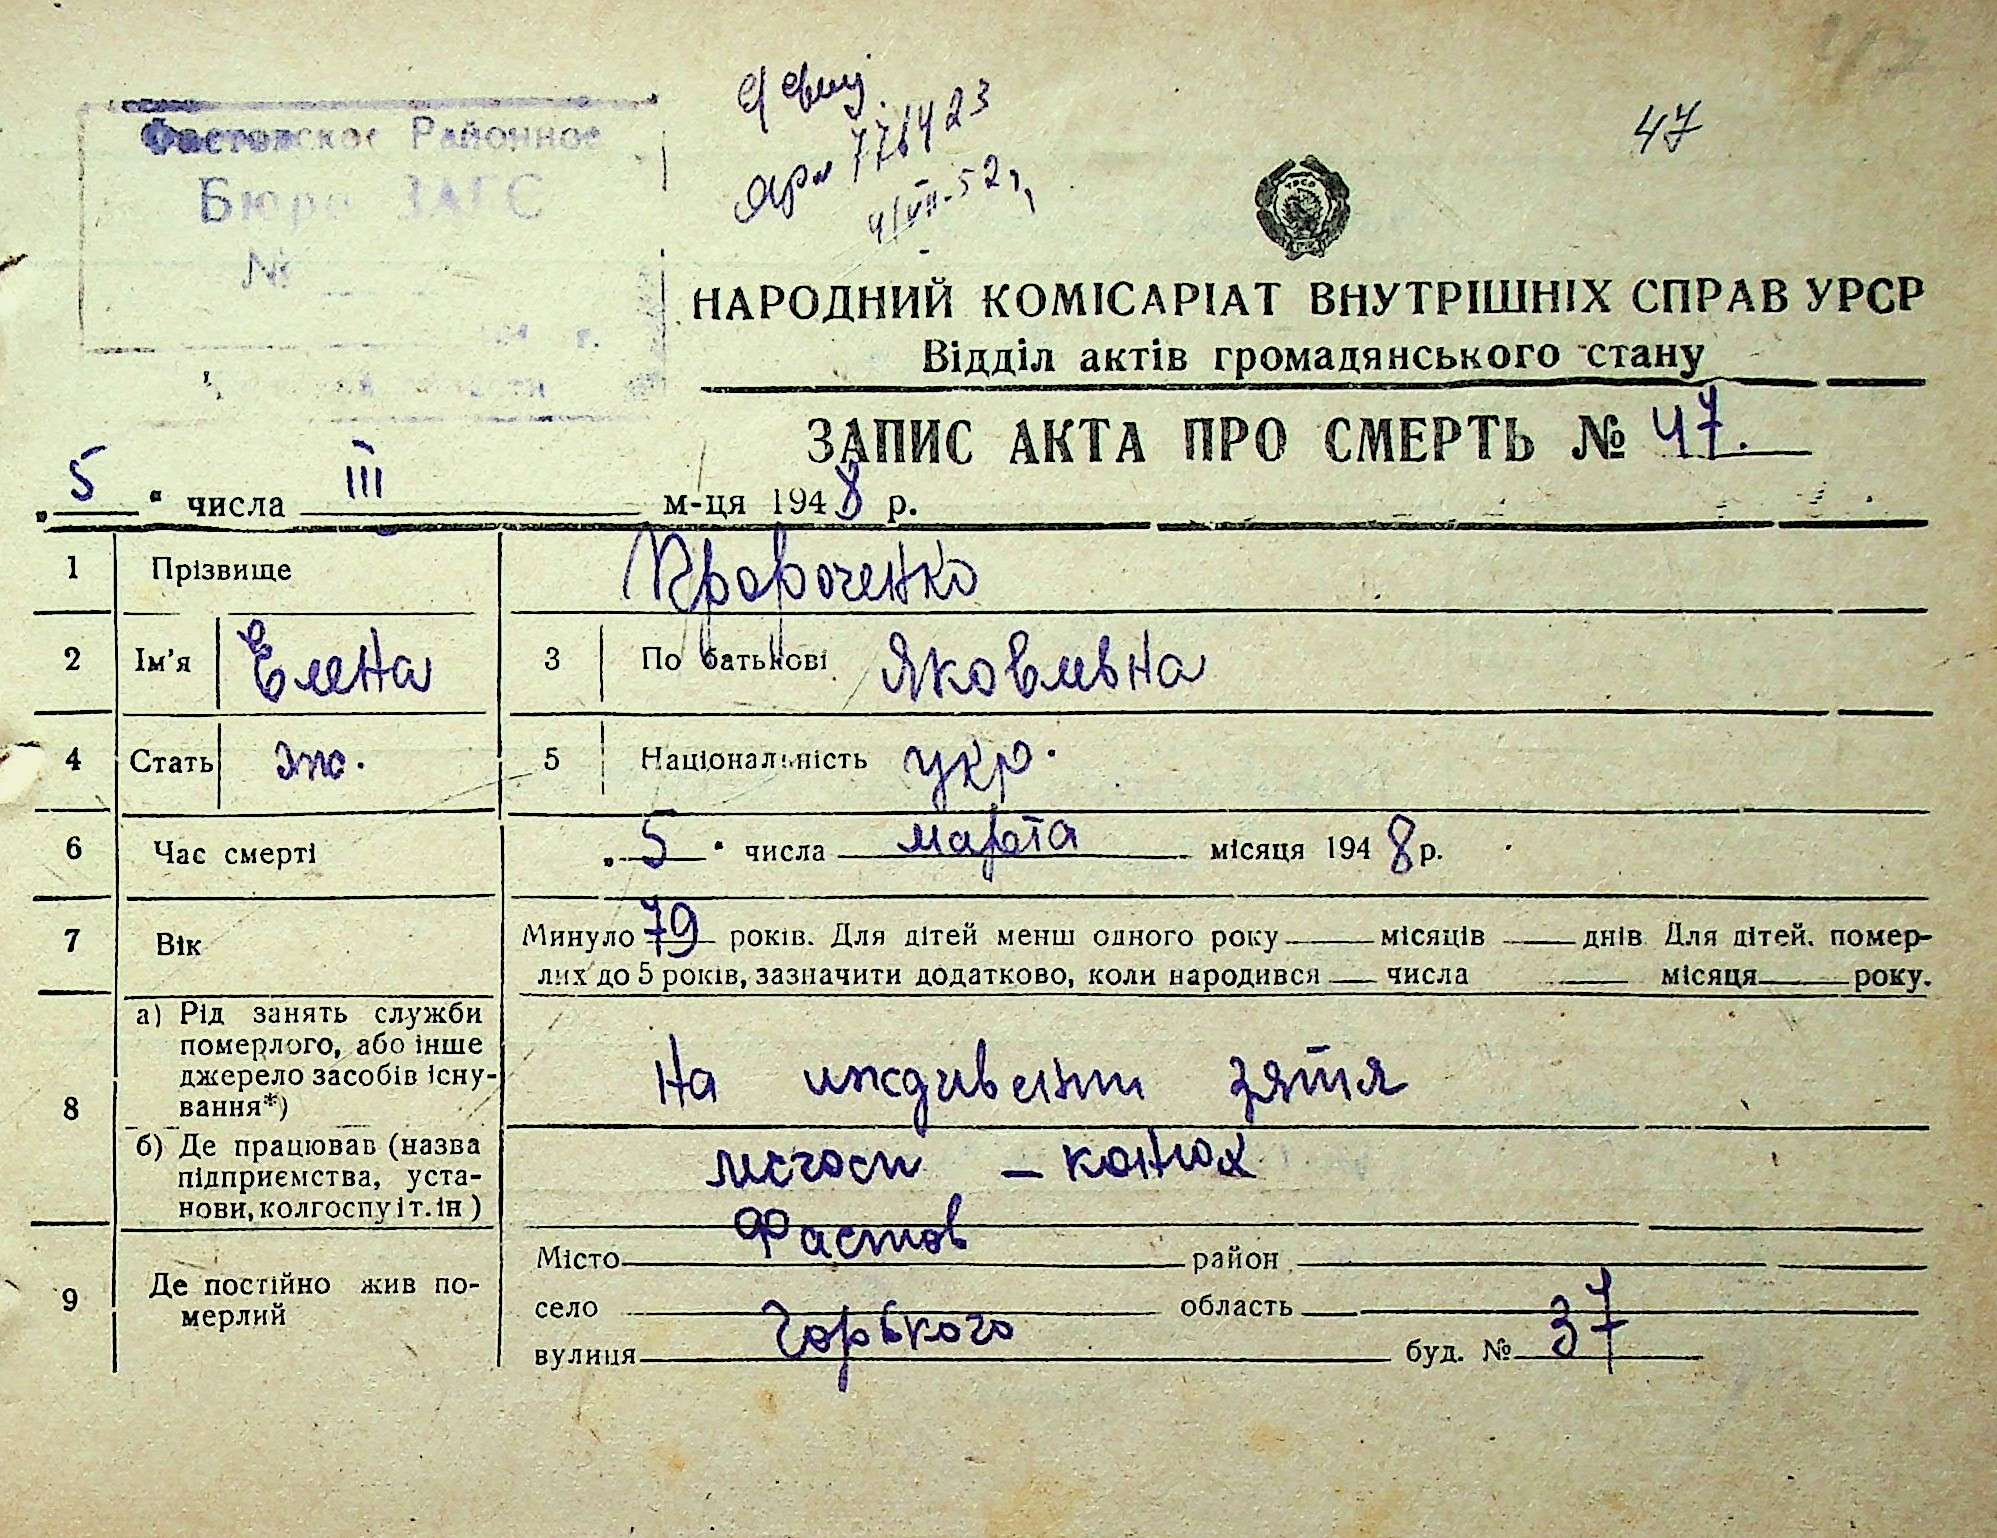 47
Фастовское Районное
Бюро ЗАГС
№
г.
ЯР № 776423
4/VII-52 г.
НАРОДНИЙ КОМІСАРІАТ ВНУТРІШНІХ СПРАВ УРСР
Відділ актів громадянського стану
ЗАПИС АКТА ПРО СМЕРТЬ № 47.
„5“ числа III м-ця 1948 р.
1 Прізвище
2 Ім'я Елена 3 По батькові Яковлевна
4 Стать ж. 5 Національність укр.
6 Час смерті „5“ числа марта місяця 1948 р.
7 Вік Минуло 79 років. Для дітей менш одного року місяців днів Для дітей, помер-
лих до 5 років, зазначити додатково, коли народився числа місяця року.
8 а) Рід занять служби
померлого, або інше
джерело засобів існу-
вання*)
На иждивении зятя
б) Де працював (назва
підприємства, уста-
нови, колгоспу і т. ін)
лесхоз – конюх
9 Де постійно жив по-
мерлий
Місто Фастов район
село область
вулиця Горького буд. № 37